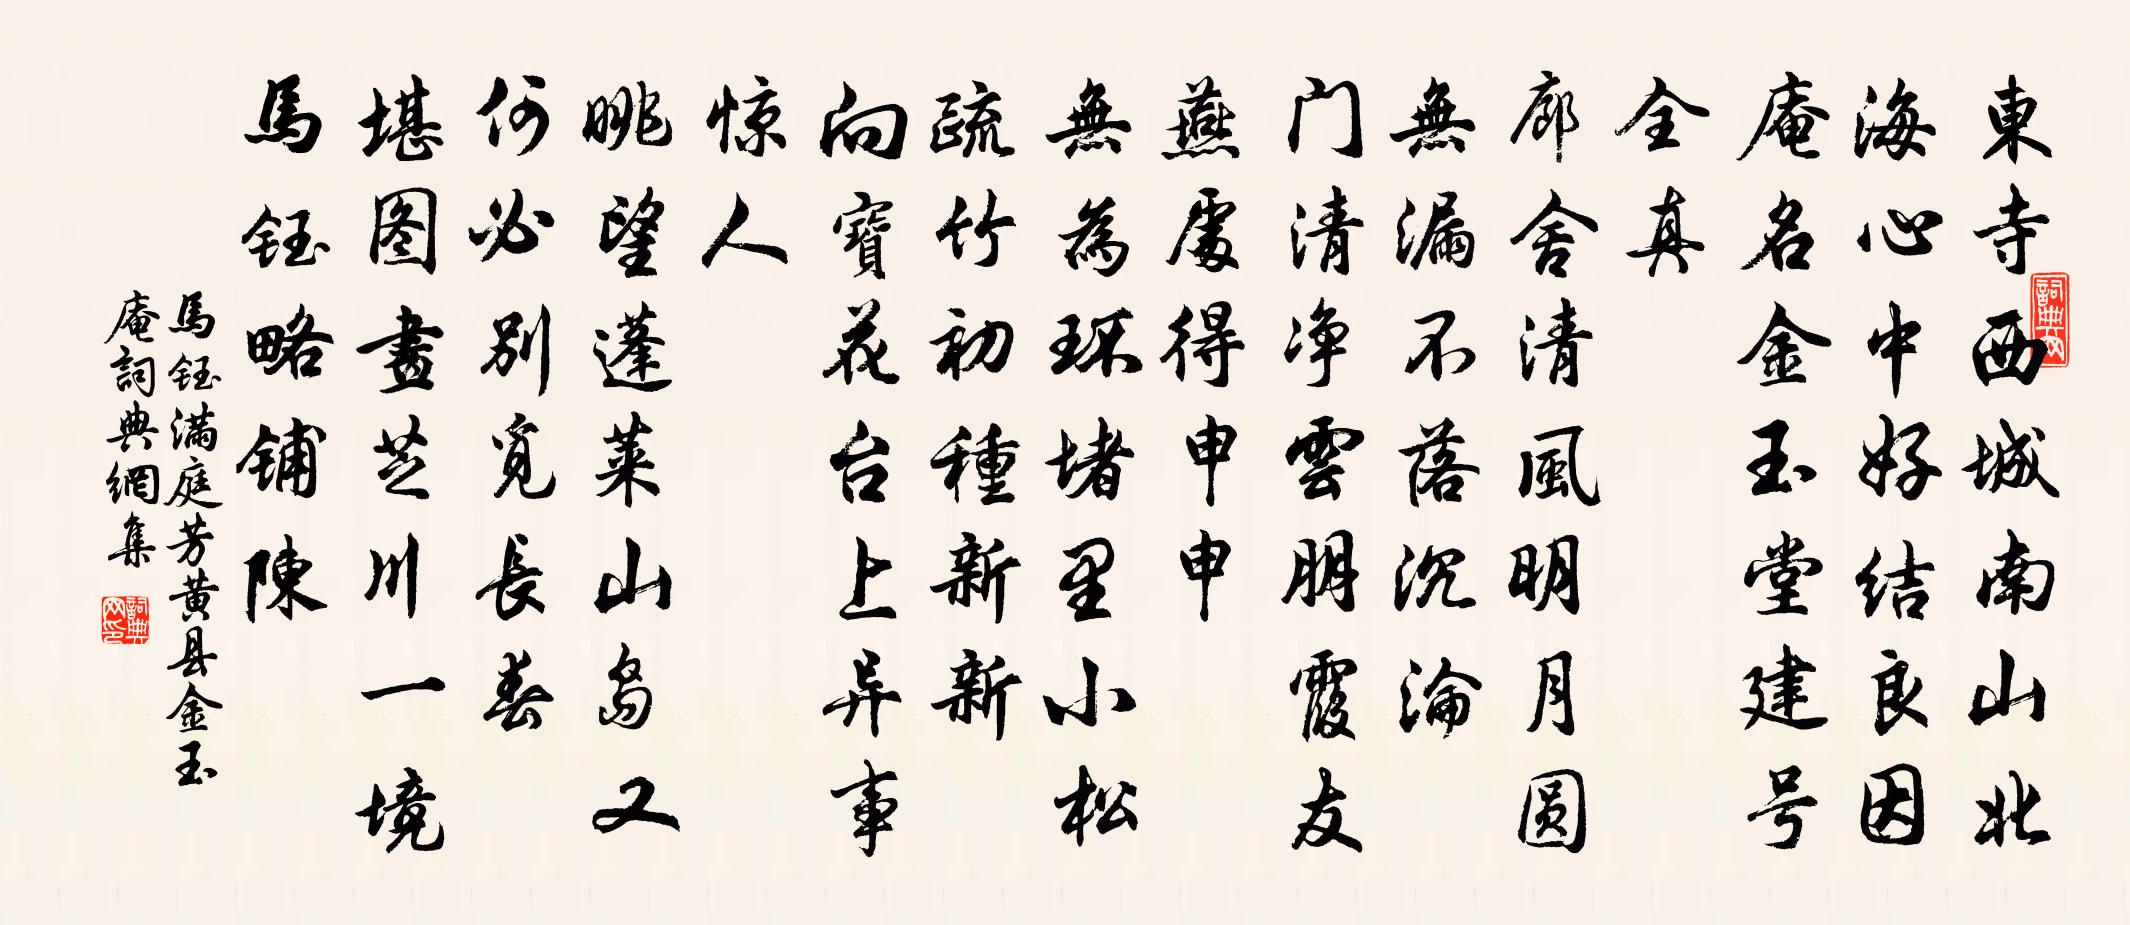 東寺西城南山北
海心中好结良因
庵名金玉堂建号
全真
廊舍清風明月圆
無漏不落沉淪
门清净雲朋霞友
燕處得申申
無為環堵里小松
疏竹初種新新
向寶花台上异事
惊人
眺望蓬莱山岛又
何必别觅長春
堪图畫芝川一境
馬钰略铺陳
馬钰满庭芳黄县金玉
庵詞典網集
詞典网
詞典网印